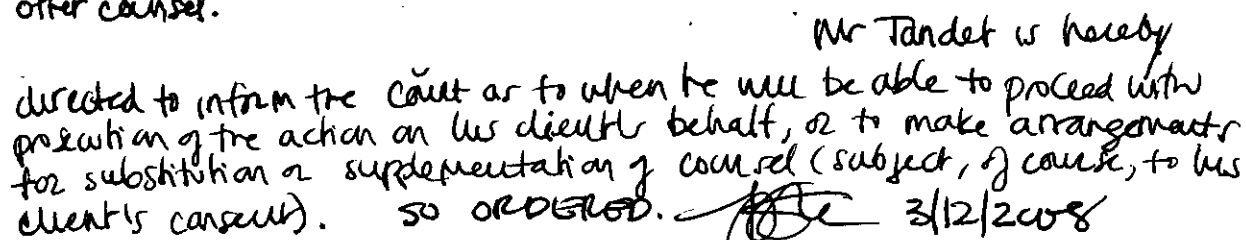 other counsel.
Mr Tandet is hereby
directed to inform the Court as to when he will be able to proceed with
prosecution of the action on his client's behalf, or to make arrangements
for substitution or supplementation of counsel (subject, of course, to his
client's consent). SO ORDERED. 3/12/2008